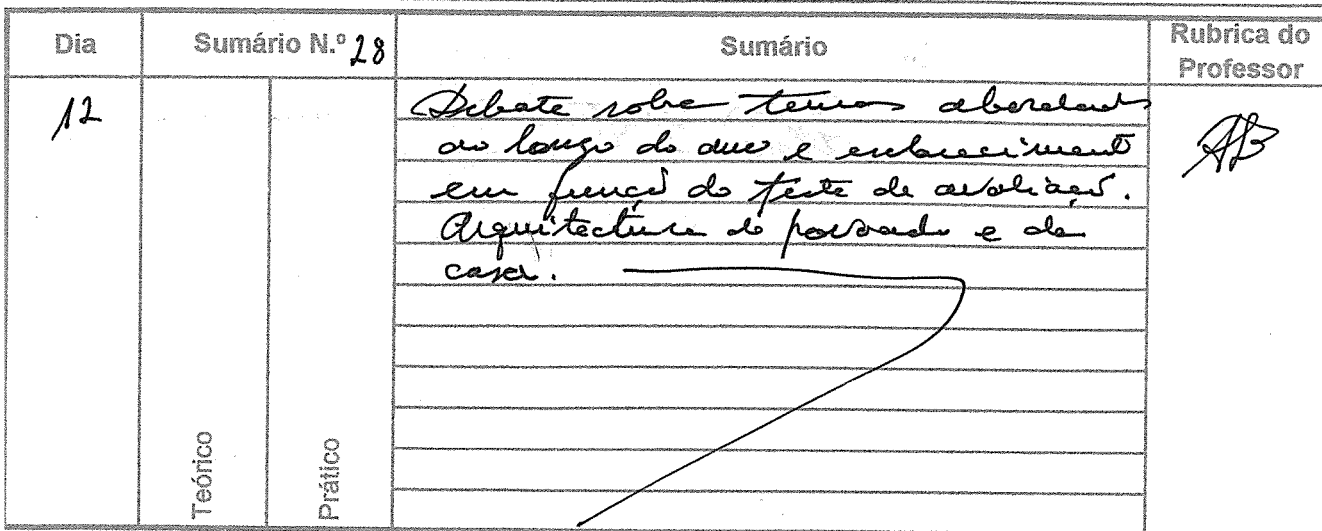 Dia Sumário N.º 28 Sumário Rubrica do Professor
12
Debate sobre temas abordados
ao longo do ano e esclarecimento
em função do teste de avaliação.
Arquitectura do povoado e da
casa.
Teórico
Prático